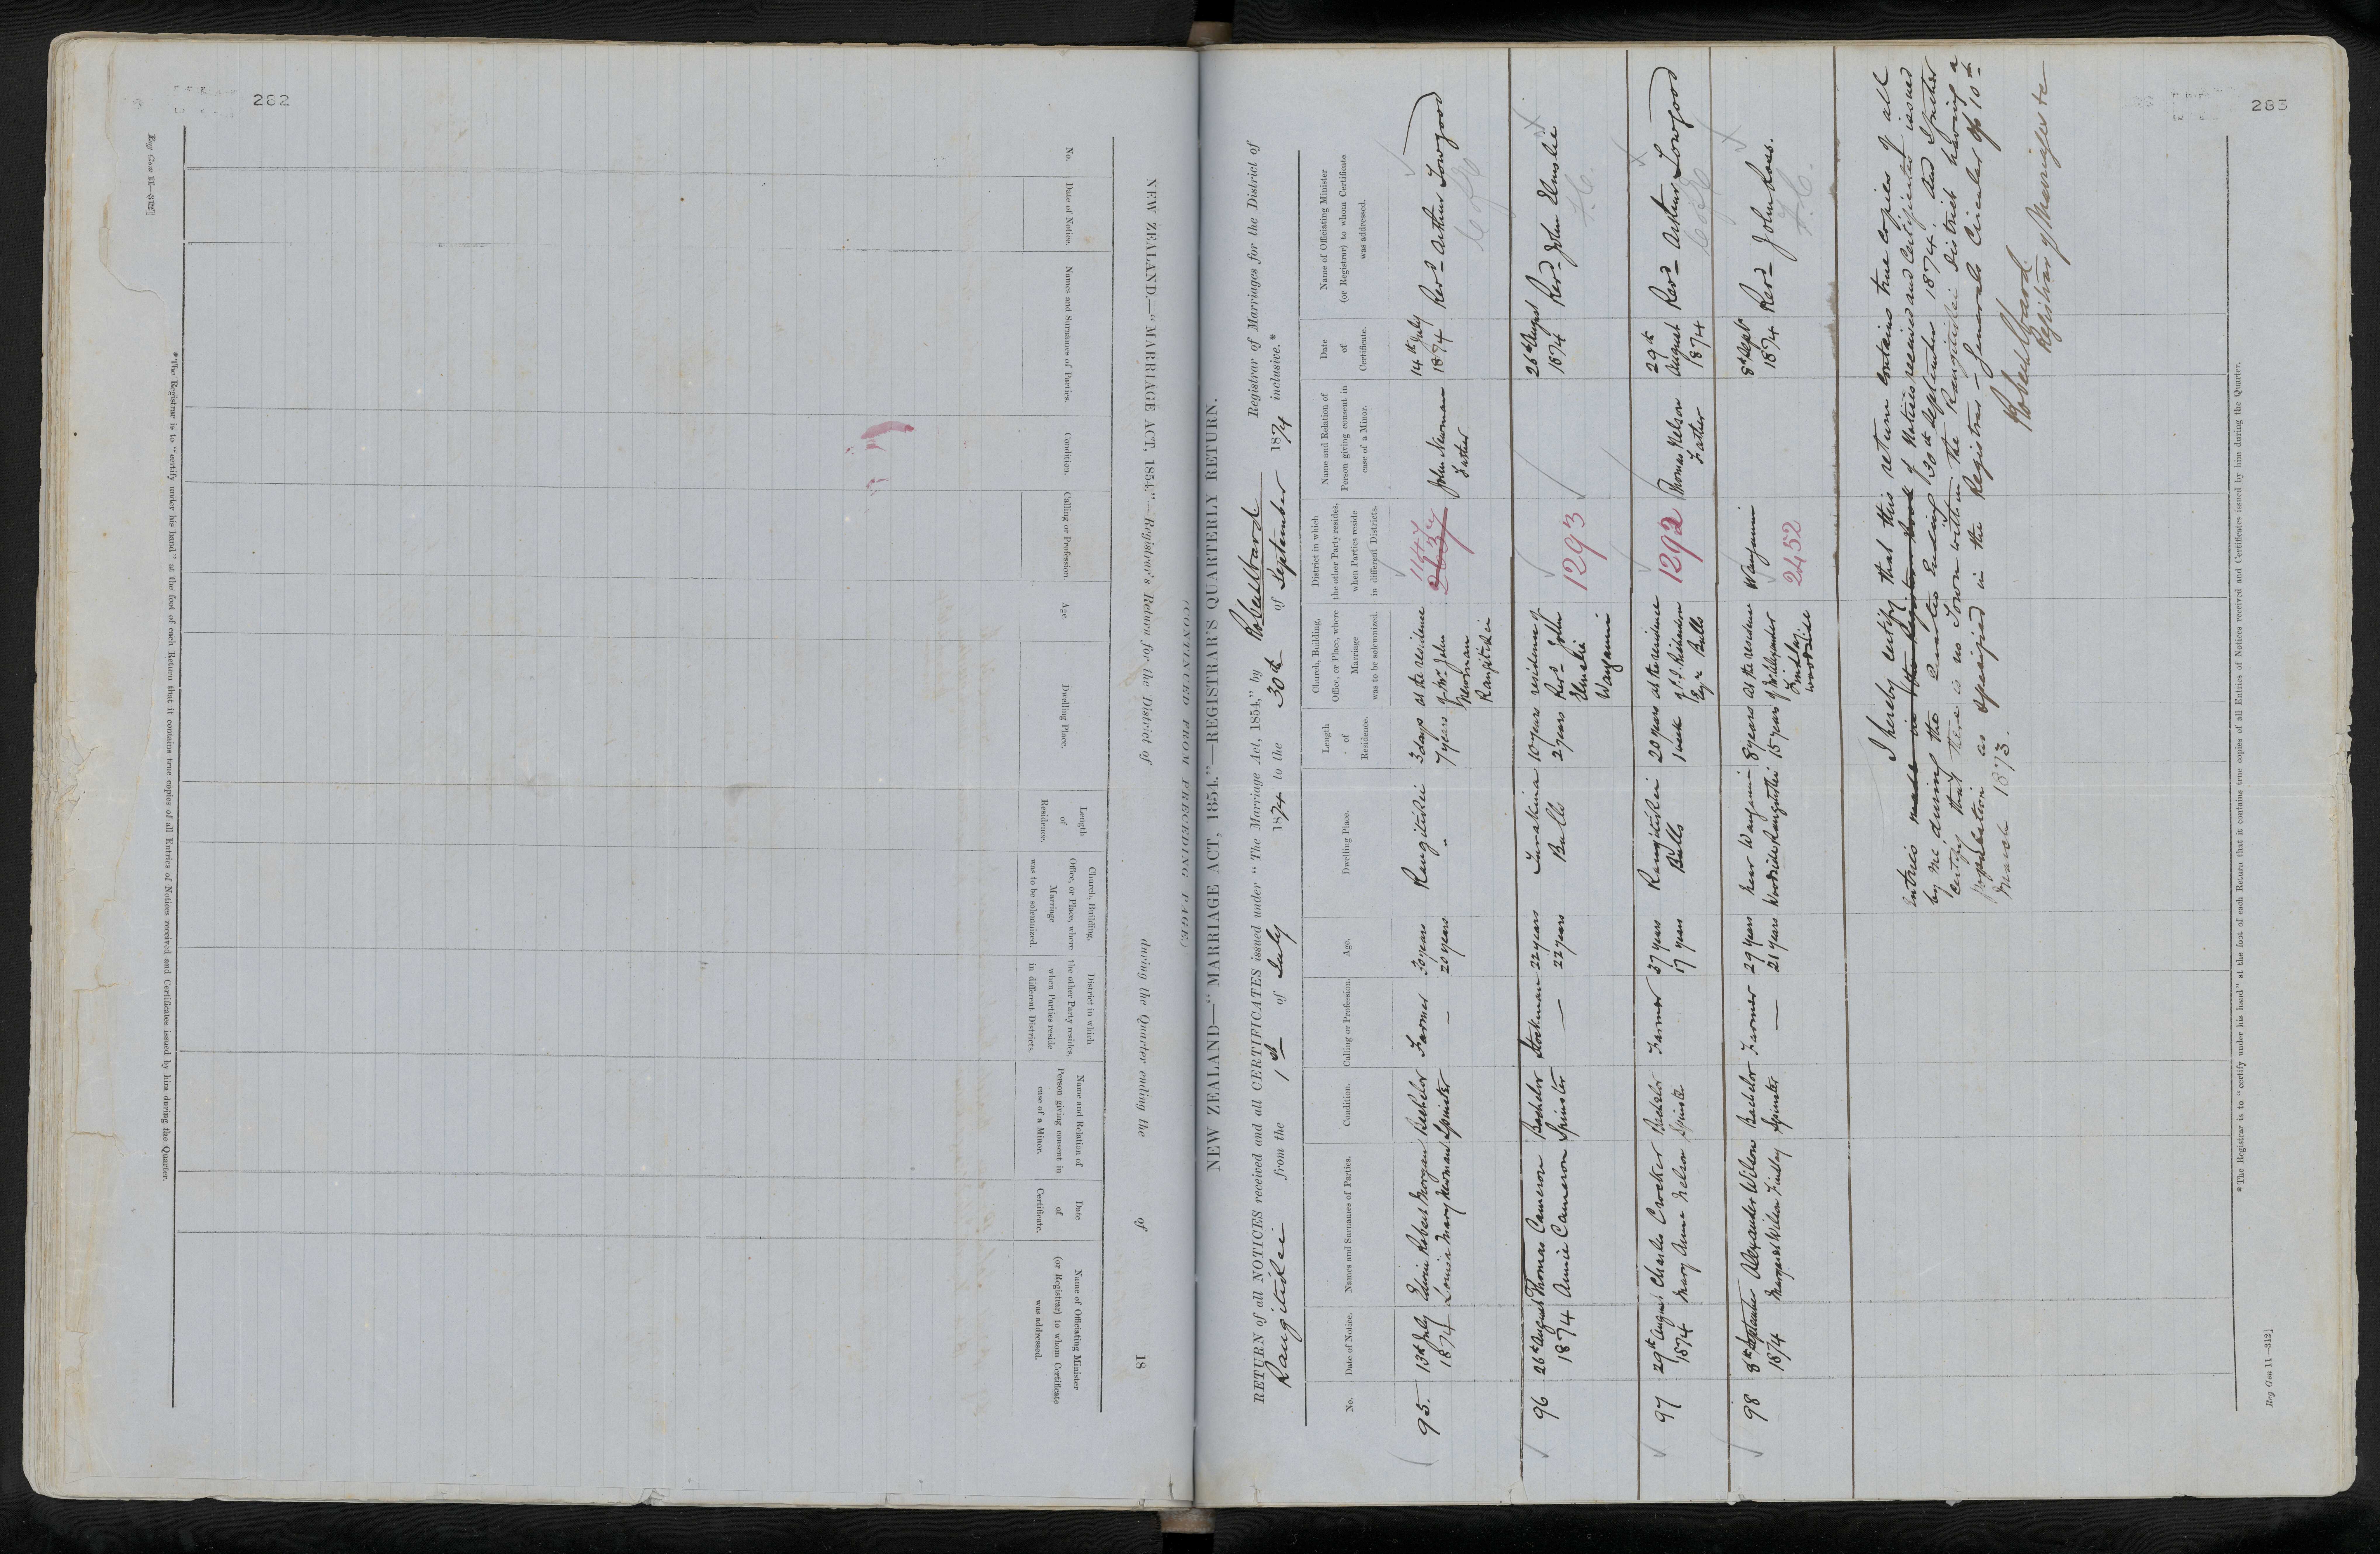 282
Reg Gen 11—312]
NEW ZEALAND.—"MARRIAGE ACT, 1854."—Registrar's Return for the District of during the Quarter ending the of 18
(CONTINUED FROM PRECEDING PAGE.)
No. Date of Notice. Names and Surnames of Parties. Condition. Calling or Profession. Age. Dwelling Place. Length of Residence. Church, Building, Office, or Place, where Marriage was to be solemnized. District in which the other Party resides, when Parties reside in different Districts. Name and Relation of Person giving consent in case of a Minor. Date of Certificate. Name of Officiating Minister (or Registrar) to whom Certificate was addressed.
*The Registrar is to "certify under his hand" at the foot of each Return that it contains true copies of all Entries of Notices received and Certificates issued by him during the Quarter.
283
NEW ZEALAND—"MARRIAGE ACT, 1854."—REGISTRAR'S QUARTERLY RETURN.
RETURN of all NOTICES received and all CERTIFICATES issued under "The Marriage Act, 1854," by Robert Ward Registrar of Marriages for the District of
Rangitikei from the 1st of July 1874 to the 30th of September 1874 inclusive.*
No. Date of Notice. Names and Surnames of Parties. Condition. Calling or Profession. Age. Dwelling Place. Length of Residence. Church, Building, Office, or Place, where Marriage was to be solemnized. District in which the other Party resides, when Parties reside in different Districts. Name and Relation of Person giving consent in case of a Minor. Date of Certificate. Name of Officiating Minister (or Registrar) to whom Certificate was addressed.
95. 13th July Edwin Robert Morgan Bachelor Farmer 30 years Rangitikei 3 days at the residence John Newman 14th July
1874 Louisa Mary Newman Spinster — 20 years " 7 years of Mr John Father 1874 Revd Arthur Towgood
Newman
Rangitikei
C of E
96 26th August Thomas Cameron Bachelor Stockman 22 years Turakina 10 years residence of 26th August
1874 Annie Cameron Spinster — 22 years Bulls 2 years Revd John 1293 1874 Revd John Elmslie
Elmslie
Wanganui
F.C.
97 29th August Charles Crocker Bachelor Farmer 27 years Rangitikei 20 years at the residence 1292 Thomas Nelson 29th
1874 Mary Anne Nelson Spinster 17 years Bulls 1 week Father August Revd Arthur Towgood
Esqre Bulls 1874
C of E
98 8th September Alexander Wilson Bachelor Farmer 29 years near Wanganui 8 years at the residence Wanganui 8th Sept
1874 Margaret Wilson Findlay Spinster — 21 years Woodside Rangitikei 15 years of Mr Alexander 2452 1874 Revd John Ross.
Findlay
Woodside
F.C.
I hereby certify that this return contains true copies of all
entries made in the Register book of Notices received and Certificates issued
by me during the Quarter Ending 30th September 1874. And I further
certify that there is no Town within the Rangitikei District having a
population as specified in the Registrar-Generals Circular of 10th
March 1873.
Robert Ward.
Registrar of Marriages &c
*The Registrar is to "certify under his hand" at the foot of each Return that it contains true copies of all Entries of Notices received and Certificates issued by him during the Quarter.
Reg Gen 11—312]